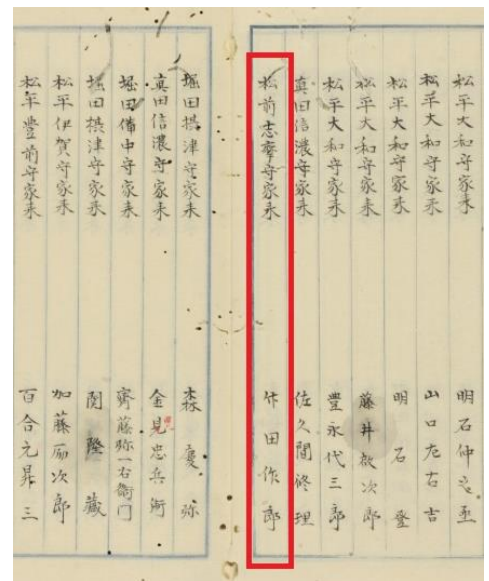 松平大和守家来 明石仲之丞
松平大和守家来 山口左右吉
松平大和守家来 明石登
松平大和守家来 藤井啟次郎
松平大和守家来 豊永代三郎
真田信濃守家来 佐久間修理
松前志摩守家来 竹田作郎
堀田摂津守家来 森慶弥
真田信濃守家来 金見忠兵衛
堀田備中守家来 齊藤弥一右衛門
堀田摂津守家来 関隆蔵
松平伊賀守家来 加藤而次郎
松平豊前守家来 百合元昇三